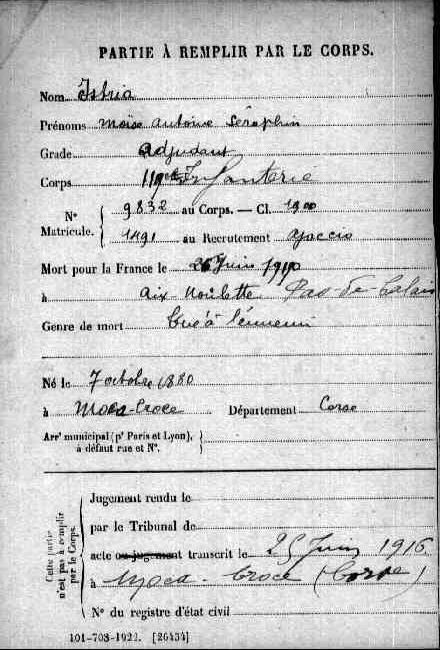 PARTIE À REMPLIR PAR LE CORPS.
Nom Istria
Prénoms Moïse Antoine Séraphin
Grade adjudant
Corps 119e Infanterie
N° Matricule. 9832 au Corps. — Cl. 1900
1491 au Recrutement Ajaccio
Mort pour la France le 26 Juin
à Aix-Noulette Pas-de-Calais
Genre de mort Tué à l'ennemi
Né le 7 octobre 1880
à Moca-Croce Département Corse
Arrt municipal (pr Paris et Lyon), à défaut rue et N°.
Cette partie n'est pas à remplir par le Corps.
Jugement rendu le
par le Tribunal de
acte ou jugement transcrit le 25 Juin 1916
à Moca-Croce (Corse)
N° du registre d'état civil
101-708-1922. [26434]